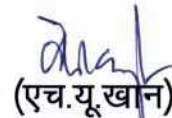 (एच.यू.खान)